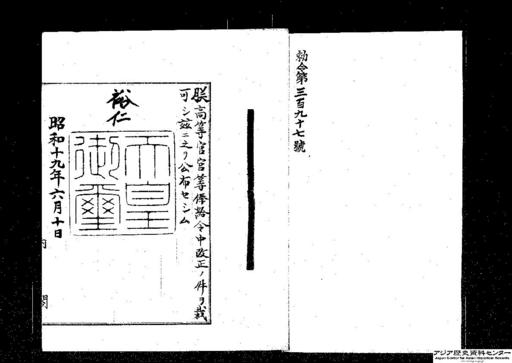 勅令第三百九十七號
朕高等官官等俸給令中改正ノ件ヲ裁
可シ茲ニ之ヲ公布セシム
裕仁
天皇
御璽
昭和十九年六月十日
内
閣
アジア歴史資料センター
Japan Center for Asian Historical Records